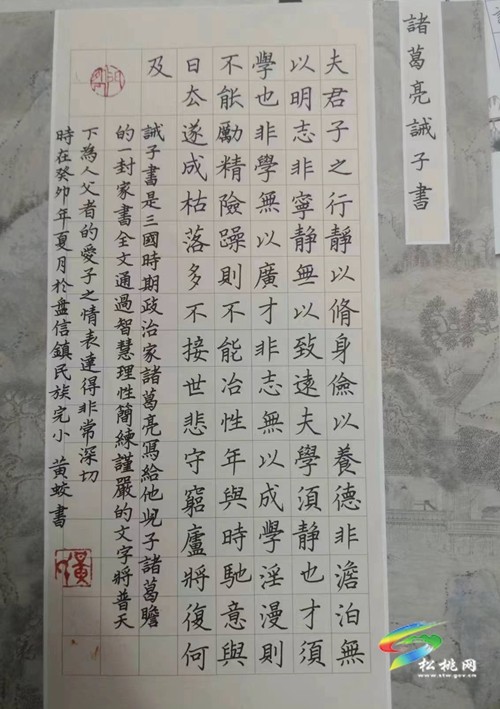 諸葛亮誡子書
夫君子之行靜以脩身儉以養德非澹泊無
以明志非寧靜無以致遠夫學須靜也才須
學也非學無以廣才非志無以成學淫漫則
不能勵精險躁則不能冶性年與時馳意與
日去遂成枯落多不接世悲守窮廬將復何
及
誡子書是三國時期政治家諸葛亮寫給他兒子諸葛瞻
的一封家書全文通過智慧理性簡練謹嚴的文字將普天
下為人父者的愛子之情表達得非常深切
時在癸卯年夏月於盘信鎮民族完小 黃蛟書
松桃网
www.stw.gov.cn